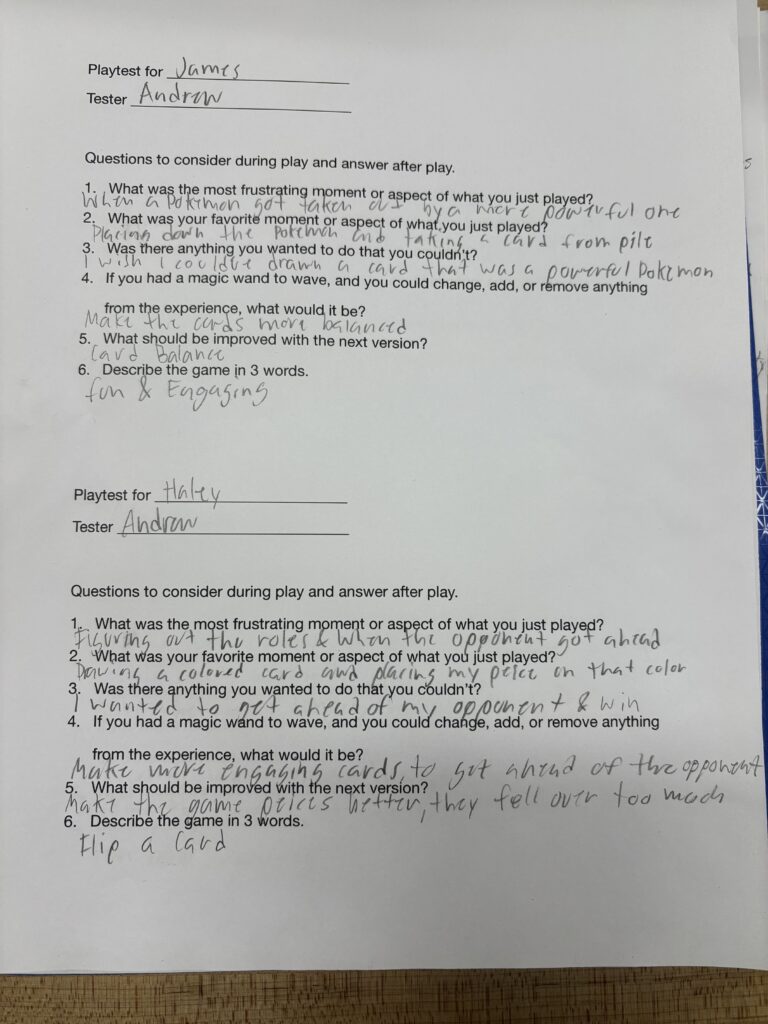 Playtest for James
Tester Andrew
Questions to consider during play and answer after play.
1. What was the most frustrating moment or aspect of what you just played?
When a Pokemon got taken out by a more powerful one
2. What was your favorite moment or aspect of what you just played?
Placing down the Pokemon and taking a card from pile
3. Was there anything you wanted to do that you couldn't?
I wish I couldve drawn a card that was a powerful Pokemon
4. If you had a magic wand to wave, and you could change, add, or remove anything
from the experience, what would it be?
Make the cards more balanced
5. What should be improved with the next version?
Card Balance
6. Describe the game in 3 words.
fun & Engaging
Playtest for Haley
Tester Andrew
Questions to consider during play and answer after play.
1. What was the most frustrating moment or aspect of what you just played?
Figuring out the roles & when the opponent got ahead
2. What was your favorite moment or aspect of what you just played?
Drawing a colored card and placing my peice on that color
3. Was there anything you wanted to do that you couldn't?
I wanted to get ahead of my opponent & win
4. If you had a magic wand to wave, and you could change, add, or remove anything
from the experience, what would it be?
Make more engaging cards, to get ahead of the opponent
5. What should be improved with the next version?
Make the game peices better, they fell over too much
6. Describe the game in 3 words.
Flip a Card